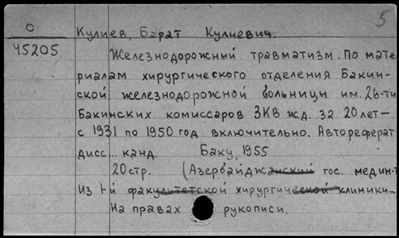 О
45205
5
Кулиев, Барат Кулиевич.
Железнодорожный травматизм. По мате-
риалам хирургического отделения Бакин-
ской железнодорожной больницы им. 26-ти
Бакинских комиссаров ЗКВ жд. за 20 лет—
с 1931 по 1950 год включительно. Автореферат
дисс... канд. Баку, 1955
20стр. (Азербайджанский гос. мединт
Из 1-й факультетской хирургической клиники—
На правах рукописи.